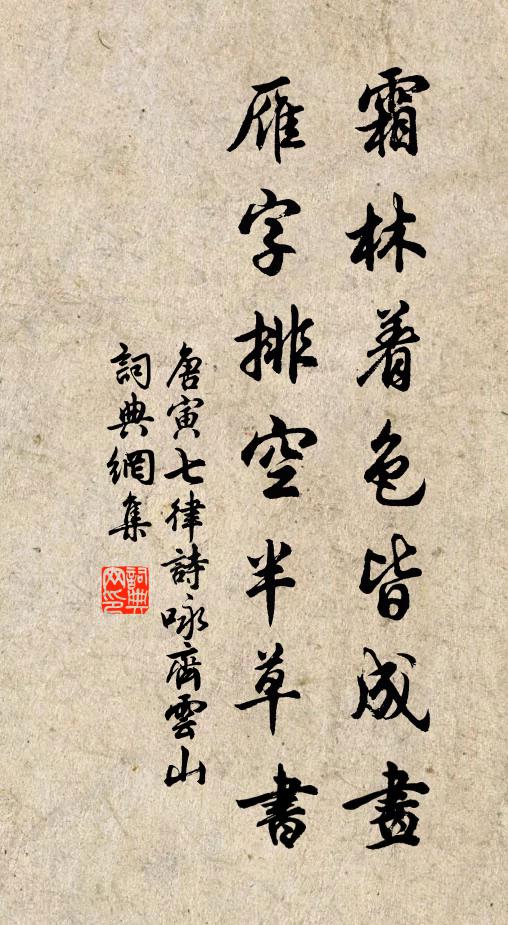 霜林着色皆成畫
雁字排空半草書
唐寅七律詩咏齊雲山
詞典網集
詞典网印